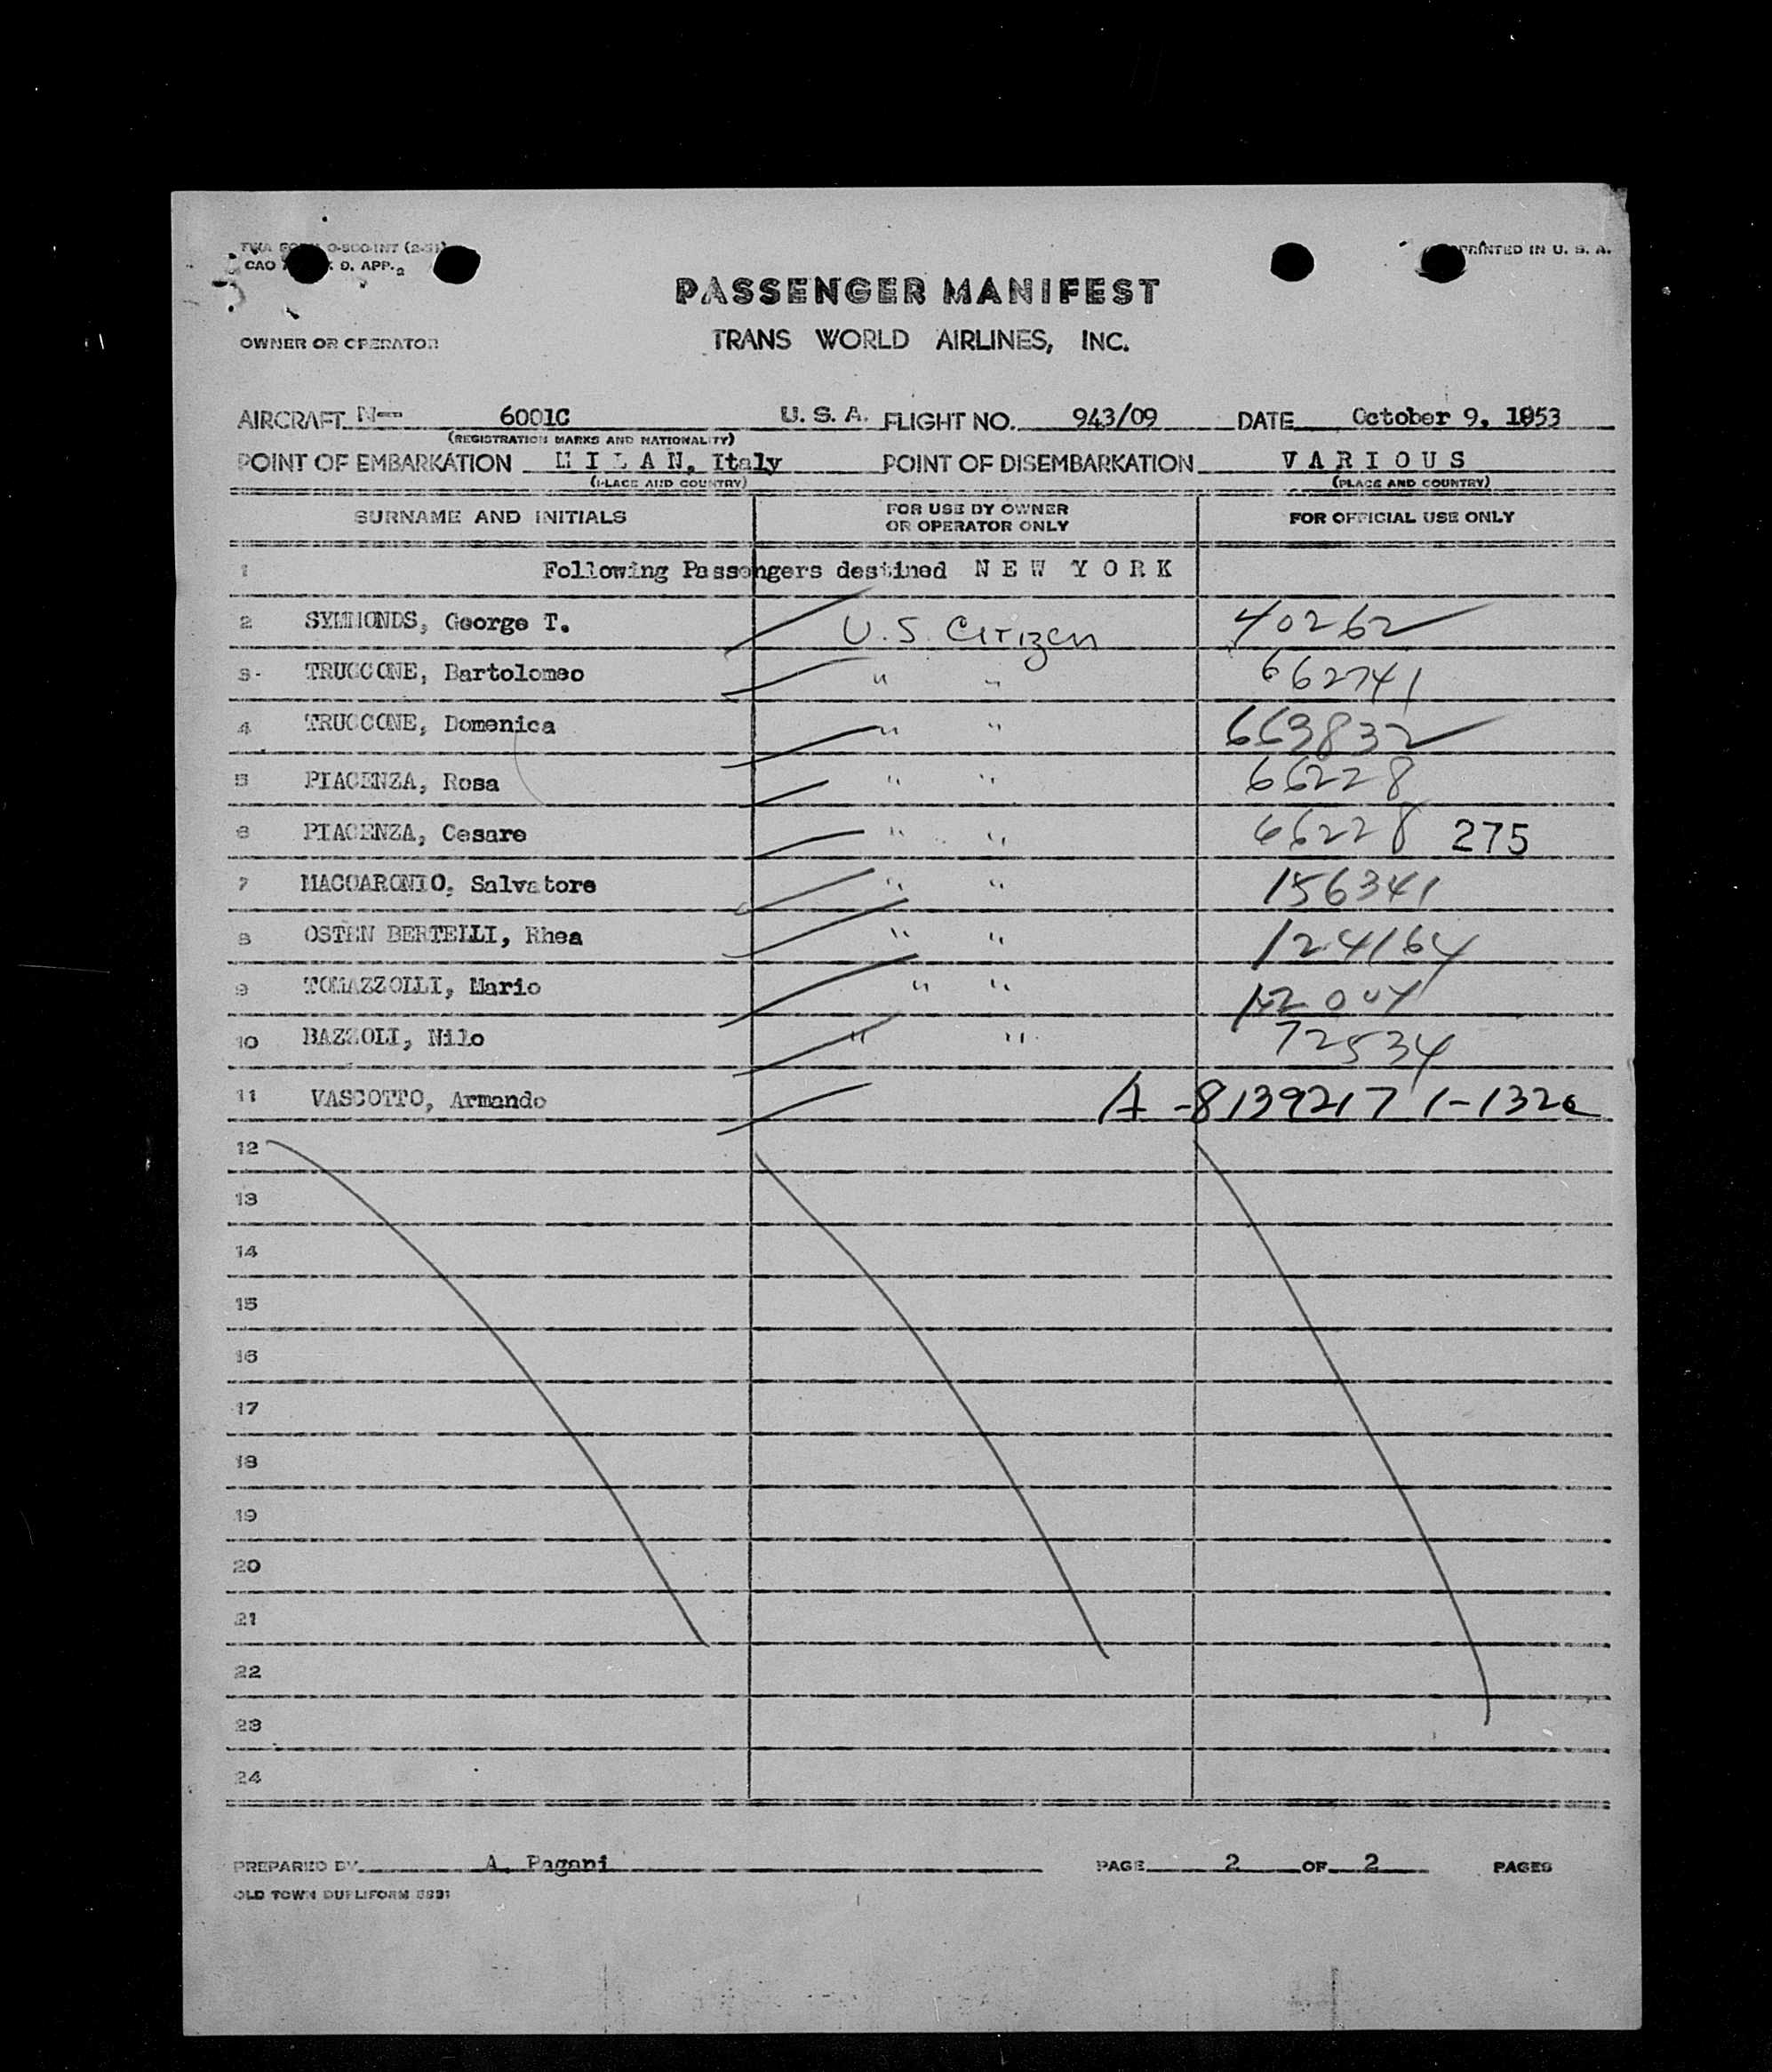 TWA FORM O-500-INT (2-51)
CAO D. APP. 2
PRINTED IN U. S. A.
PASSENGER MANIFEST
OWNER OR OPERATOR TRANS WORLD AIRLINES, INC.
AIRCRAFT N- 6001C U. S. A. FLIGHT NO. 943/09 DATE October 9, 1953
(REGISTRATION MARKS AND NATIONALITY)
POINT OF EMBARKATION M I L A N, Italy POINT OF DISEMBARKATION V A R I O U S
(PLACE AND COUNTRY) (PLACE AND COUNTRY)
SURNAME AND INITIALS FOR USE BY OWNER OR OPERATOR ONLY FOR OFFICIAL USE ONLY
1 Following Passengers destined N E W Y O R K
2 SYMMONDS, George T. U.S. Citizen 40262
3 TRUCCONE, Bartolomeo " " 662741
4 TRUCCONE, Domenica " " 663832
5 PIACENZA, Rosa " " 66228
6 PIACENZA, Cesare " " 66228 275
7 MACCARONIO, Salvatore " " 156341
8 OSTEN BERTELLI, Rhea " " 124164
9 TOMAZZOLLI, Mario " "
10 BAZZOLI, Nilo " " 72534
11 VASCOTTO, Armando A-8139217
12
13
14
15
16
17
18
19
20
21
22
23
24
PREPARED BY A. Pagani PAGE 2 OF 2 PAGES
OLD TOWN DUPLIFORM